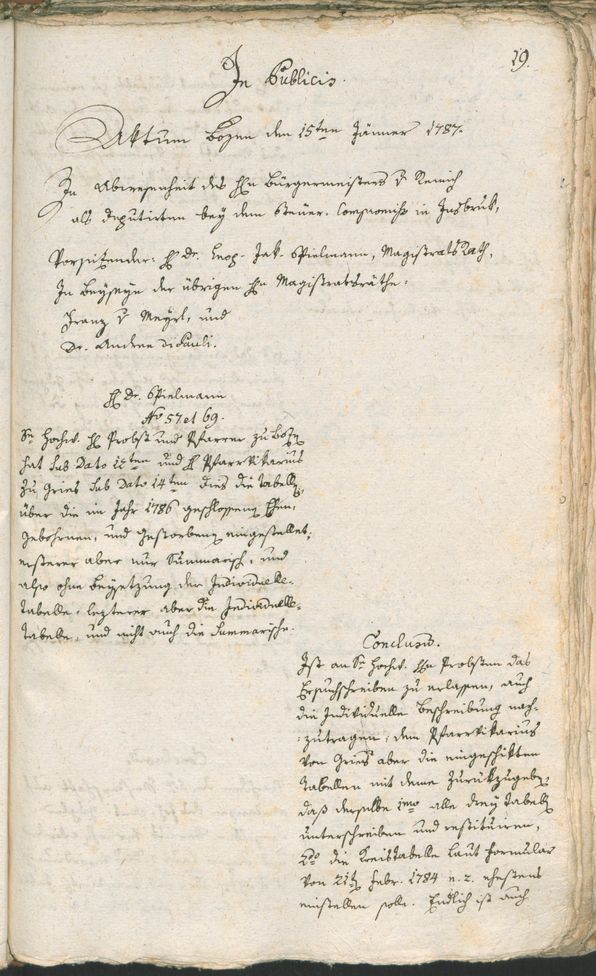 19.
In Publicis.
Aktum Bozen den 15ten Jänner 1787.
In Abwesenheit des H Bürgermeisters v Remich
als Deputirten bey dem Steuer-Compromiß in Insbruk,
Vorsitzender: H Dr. Leop. Jak. Spielmann, MagistratsRath,
In Beyseyn der übrigen H Magistratsräthe:
Franz v Mayrl, und
Dr. Andree Di Pauli.
H Dr. Spielmann
No 57 et 69.
Se Hochw. H Probst und Pfarrer zu Boz
hat sub Dato 12ten und H PfarrVikarius
zu Gries sub Dato 14ten dies die Tabell
über die im Jahr 1786 geschlossenen Ehen,
Gebohrnen, und Gestorbenen eingestellet;
ersterer aber nur Summarisch, und
also ohne Beysetzung der Individuelle-
Tabelle, lezterer aber die Individuelle-
Tabelle, und nicht auch die Summarische.
Conclusum.
Ist an Se Hochw. H Probsten das
Ersuchschreiben zu erlassen, auch
die Individuelle Beschreibung nach-
:zutragen, dem PfarrVikarius
von Gries aber die eingeschikten
Tabellen mit deme zurükzugeben,
daß derselbe imo alle drey Tabell
unterschreiben und restituiren,
2do die Kreistabelle laut Formular
von 21t Febr. 1784 n. 2. ehestens
einstellen solle. Endlich ist auch